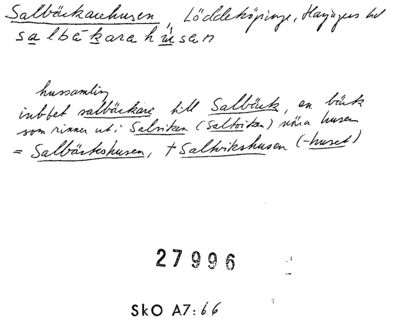 Salbäckarehusen, Löddeköpinge, Harjagers hd
salbäkarahúsen
hussamling
inb-bet salbäckare till Salbäck, en bäck
som rinner ut i Salviken (Saltviken) nära husen
= Salbäckshusen, † Saltvikshusen (-huset)
27996
SkO A7:66